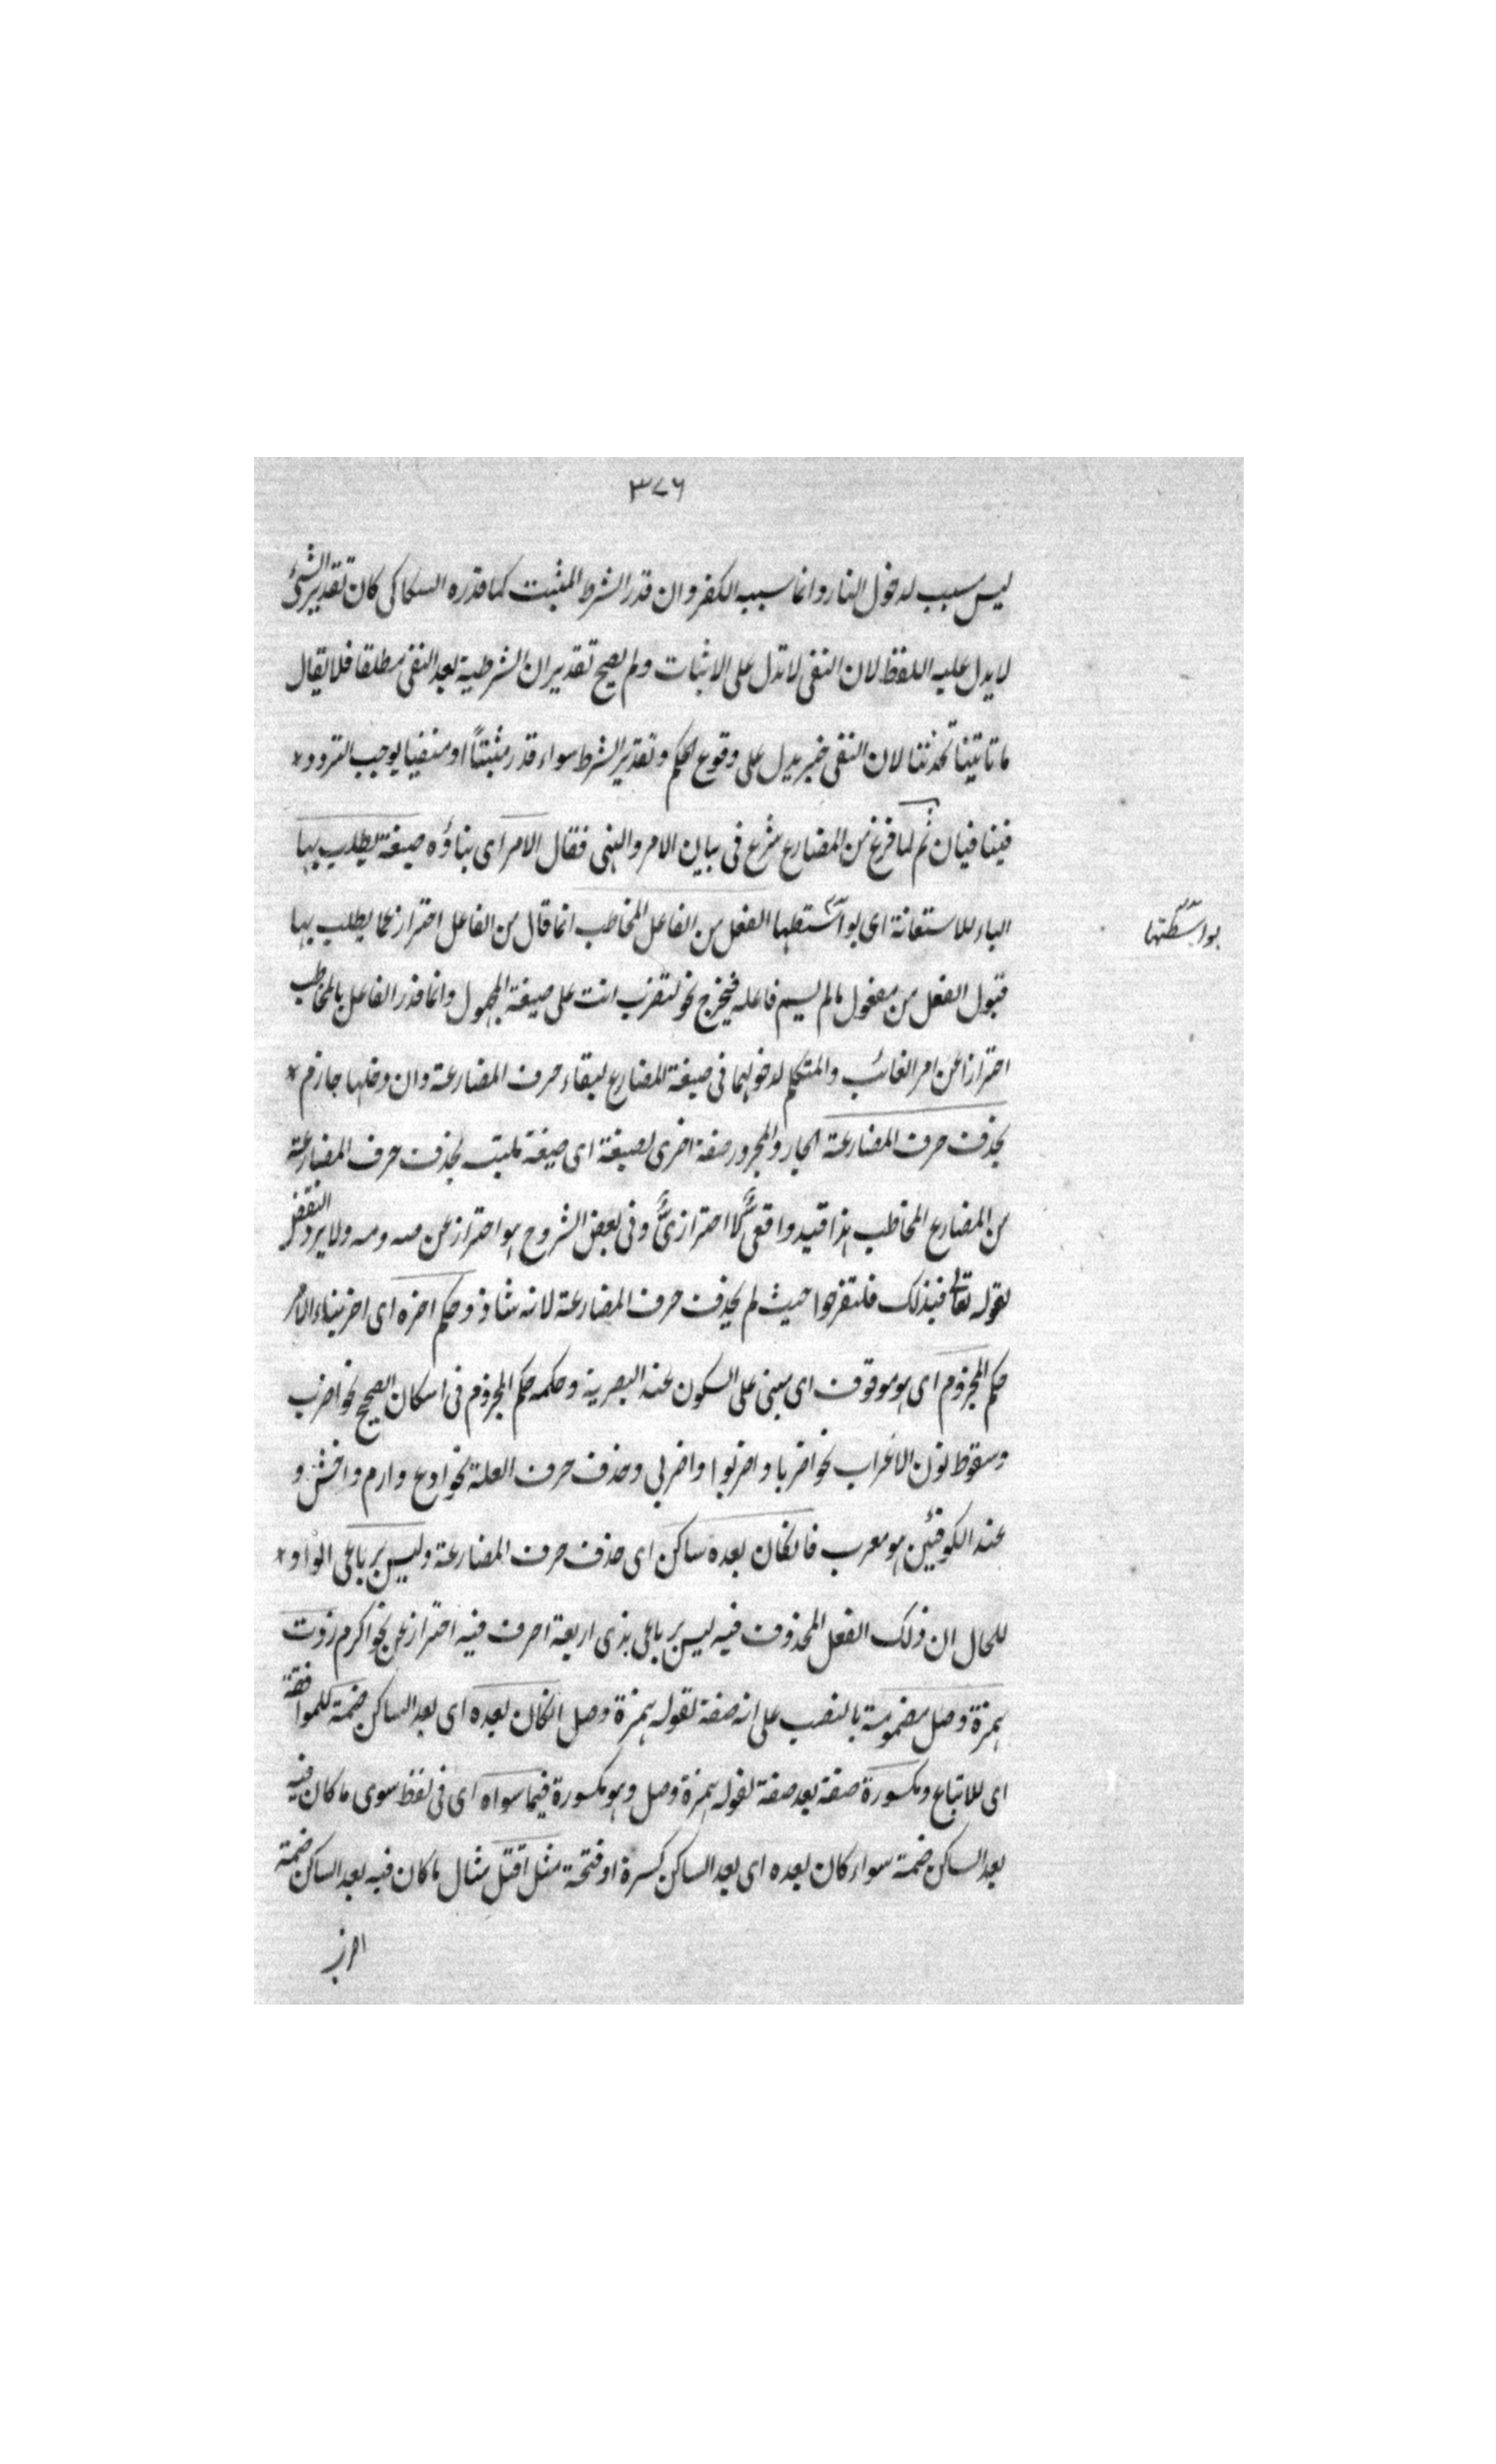 ٣٧٦
ليس سبب لدخول النار وانما سببه الكفر وان قدر الشرط المثبت كما قدره السكاكى كان تقدير الشئ
لا يدل عليه اللفظ لان النفى لا تدل على الاثبات ولم يصح تقدير ان الشرطية بعد النفى مطلقا فلا يقال
ما تاتينا تحدثنا لان النفى خبر يدل على وقوع الحكم وتقدير الشرط سواء قدر مثبتاً او منفيا يوجب التردد
فيتنافيان ثم لما فرغ من المضارع شرع فى بيان الامر والنهى فقال الامر اى بناؤه صيغة يطلب بها
الباء للاستعانة اى بواستطها الفعل من الفاعل المخاطب انما قال من الفاعل احتراز عما يطلب بها
بواسطتها
قبول الفعل من مفعول مالم يسم فاعله فيخرج نحو لتضرب انت على صيغة المجهول وانما قدر الفاعل بالمخاطب
احترازا عن امر الغائب والمتكلم لدخولهما فى صيغة المضارع لبقاء حرف المضارعة وان دخلها جازم
بحذف حرف المضارعة الجار والمجرور صفة اخرى لصيغة اى صيغة ملبت بحذف حرف المضارعة
من المضارع المخاطب هذا قيد واقعى لا احترازى وفى بعض الشروح هو احتراز عن صه ومه ولا يرد النقض
بقوله تعالى فبذلك فلتفرحوا حيث لم يحذف حرف المضارعة لانه شاذ وحكم اخره اى اخر بناء الامر
حكم المجزوم اى هو موقوف اى مبنى على السكون عند البصرية وحكمه حكم المجزوم فى اسكان الصحيح نحو اضرب
وسقوط نون الاعراب نحو اضربا واضربوا واضربى وحذف حرف العلة نحو ادع وارم واخش و
عند الكوفيين هو معرب فانكان بعده ساكن اى حذف حرف المضارعة وليس برباعى الواو
للحال ان ذلك الفعل المحذوف فيه ليس برباعى بذى اربعة احرف فيه احتراز عن نحو اكرم زدت
همزة وصل مضمومة بالنصب على انه صفة لقوله همزة وصل انكان بعده اى بعد الساكن ضمة للموافقة
اى للاتباع ومكسورة صفة بعد صفة لقوله همزة وصل وهو مكسورة فيما سواه اى فى لفظ سوى ما كان فيه
بعد الساكن ضمة سواء كان بعده اى بعد الساكن كسرة او فتحة مثل اقتل مثال ما كان فيه بعد الساكن ضمة